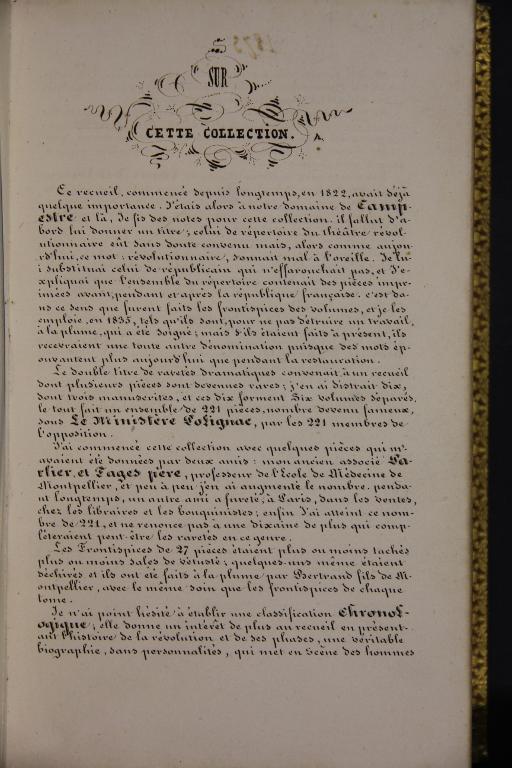 SUR
CETTE COLLECTION.
Ce recueil, commencé depuis longtemps, en 1822, avait déjà
quelque importance. J'étais alors à notre domaine de Camp-
estre et là, Je fis des notes pour cette collection. il fallut d'a-
bord lui donner un titre; celui de répertoire du théâtre révol-
utionnaire eût sans doute convenu mais, alors comme aujou-
rd'hui, ce mot: révolutionnaire, sonnait mal à l'oreille. Je lu-
i substituai celui de républicain qui n'effarouchait pas, et J'e-
xpliquai que l'ensemble du répertoire contenait des pièces impr-
imées avant, pendant et après la république française. c'est da-
ns ce sens que furent faits les frontispices des volumes, et je les
emploie, en 1835, tels qu'ils sont, pour ne pas détruire un travail,
à la plume, qui a été soigné; mais s'ils étaient faits à présent, ils
recevraient une toute autre dénomination puisque des mots ép-
ouvantent plus aujourd'hui que pendant la restauration.
Le double titre de raretés dramatiques convenait à un recueil
dont plusieurs pièces sont devennues rares; j'en ai distrait dix,
dont trois manuscrites, et ces dix forment Six volumes séparés.
le tout fait un ensemble de 221 pièces, nombre devenu fameux,
sous Le Ministère Polignac, par les 221 membres de
l'opposition.
J'ai commencé cette collection avec quelques pièces qui m'-
avaient été données par deux amis: mon ancien associé
rlier, et Pages père, professeur de l'École de Médecine de
Montpellier, et peu à peu j'en ai augmenté le nombre. penda-
nt longtemps, un autre ami a fureté, à Paris, dans les ventes,
chez les libraires et les bouquinistes; enfin J'ai atteint ce nom-
bre de 221, et ne renonce pas à une dixaine de plus qui comp-
lèteraient peut-être les raretés en ce genre.
Les Frontispices de 27 pièces étaient plus ou moins tachés
plus ou moins sales de vétusté; quelques-uns même étaient
déchirés et ils ont été faits à la plume par Bertrand fils de M-
ontpellier, avec le même soin que les frontispices de chaque
tome.
Je n'ai point hésité à établir une classification Chronol-
ogique; elle donne un intérêt de plus au recueil en présent-
ant l'histoire de la révolution et de ses phases, une véritable
biographie, sans personnalités, qui met en scène des hommes